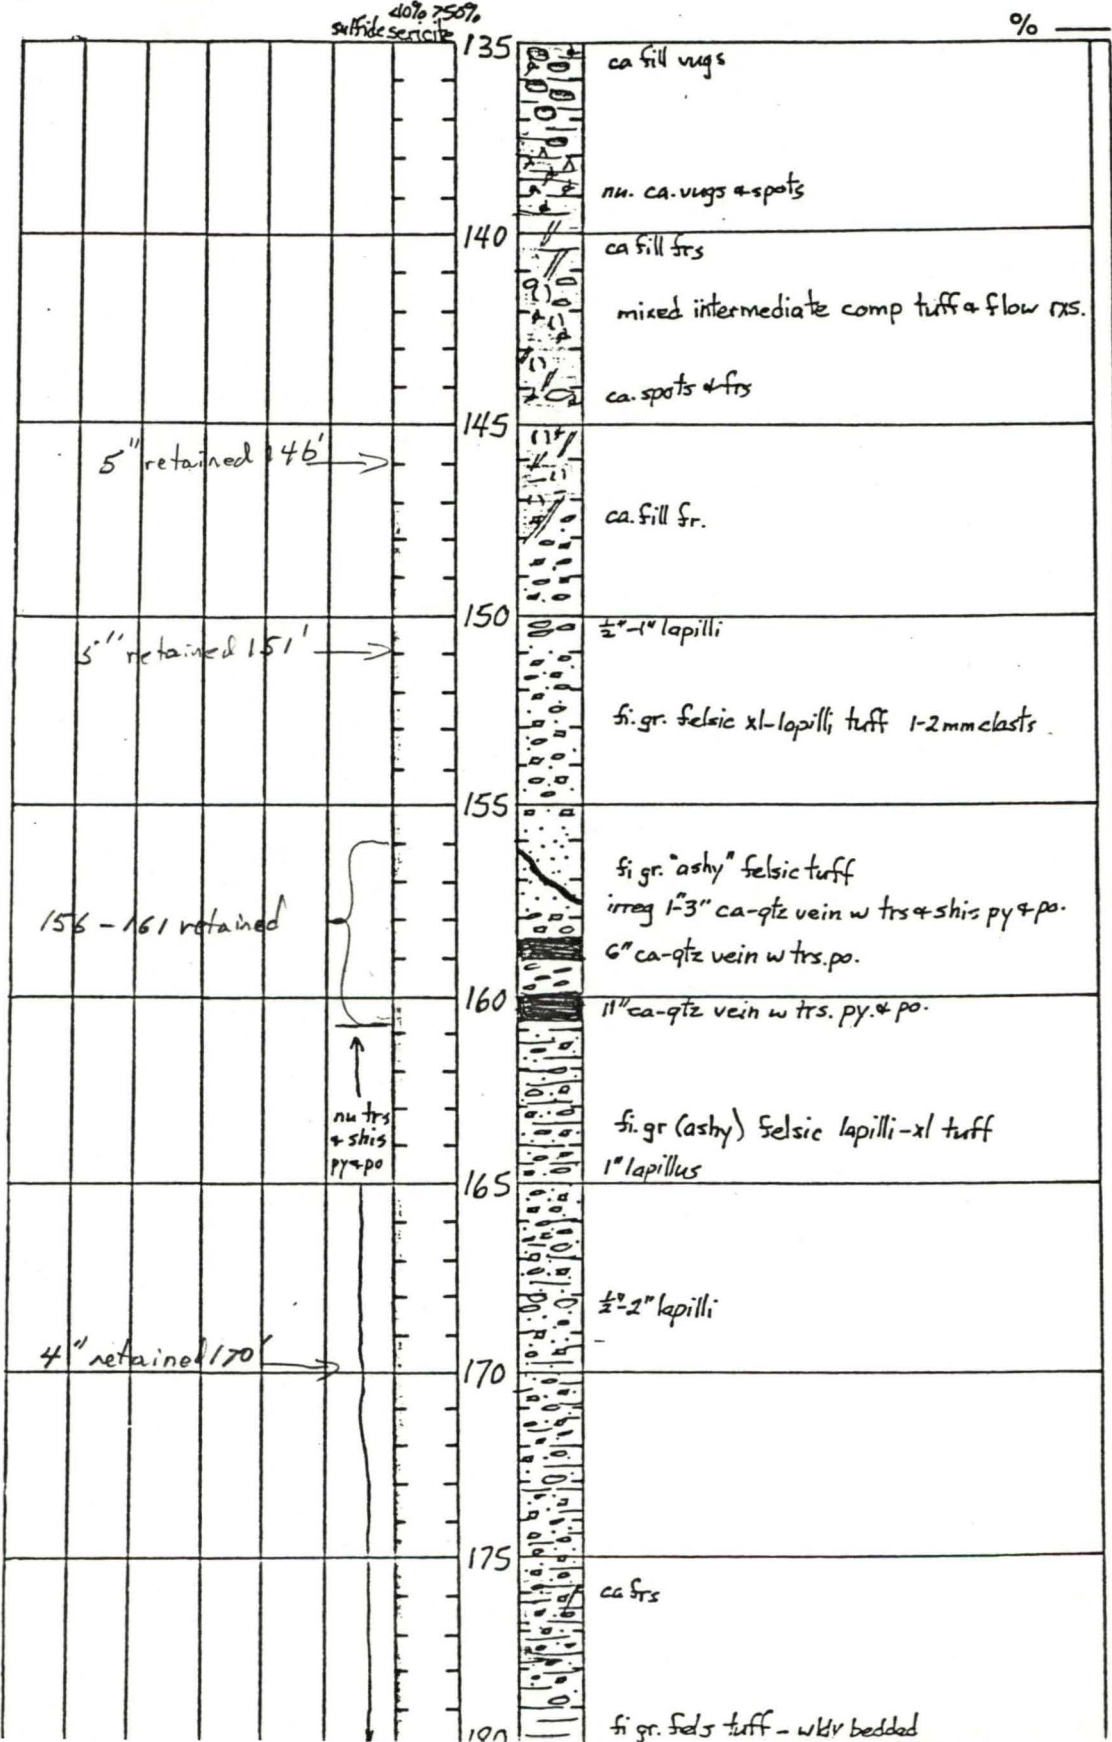 <10% >50%
sulfide sericite
%
135
ca fill vugs
nu. ca. vugs & spots
140
ca fill frs
mixed intermediate comp tuff & flow rxs.
ca. spots & frs
145
5" retained 146'
ca. fill fr.
150
½"-1" lapilli
5" retained 151'
fi. gr. felsic xl-lapilli tuff 1-2mm clasts
155
fi gr. "ashy" felsic tuff
irreg 1"-3" ca-qtz vein w trs & shis py & po.
156-161 retained
6" ca-qtz vein w trs. po.
160
11" ca-qtz vein w trs. py. & po.
nu trs
& shis
py & po
fi. gr (ashy) felsic lapilli-xl tuff
1" lapillus
165
½"-2" lapilli
4" retained 170'
170
175
ca frs
fi gr. fels tuff - wkly bedded
180